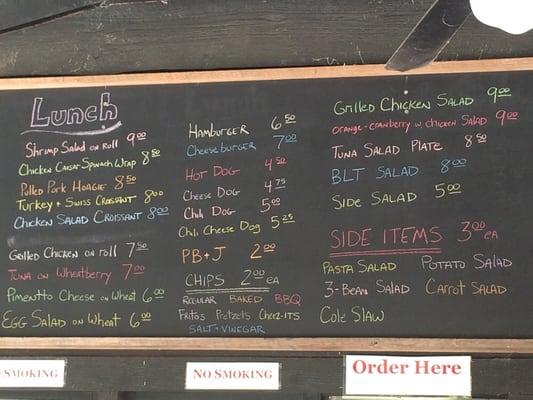 Lunch
Shrimp Salad on Roll 9.00
Chicken Caesar-Spinach Wrap 8.50
Pulled Pork Hoagie 8.50
Turkey + Swiss Croissant 8.00
Chicken Salad Croissant 8.00
Grilled Chicken on roll 7.50
Tuna on Wheatberry 7.00
Pimentto Cheese on Wheat 6.00
Egg Salad on Wheat 6.00
Hamburger 6.50
Cheeseburger 7.00
Hot Dog 4.50
Cheese Dog 4.75
Chili Dog 5.00
Chili Cheese Dog 5.25
PB+J 2.00
Chips 2.00 ea
Regular Baked BBQ
Fritos Pretzels Cheez-its
Salt+Vinegar
Grilled Chicken Salad 9.00
Orange-Cranberry w. Chicken Salad 9.00
Tuna Salad Plate 8.50
BLT Salad 8.00
Side Salad 5.00
Side Items 3.00 ea
Pasta Salad Potato Salad
3-Bean Salad Carrot Salad
Cole Slaw
Smoking
No Smoking
Order Here